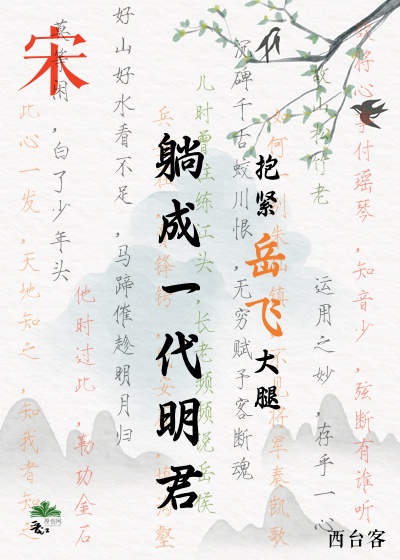 宋
抱紧
岳飞
大腿
躺成一代明君
欲将心事付瑶琴，知音少，弦断有谁听
运用之妙，存乎一心
沉碑千古蛟川恨，无穷赋予客断魂
儿时曾住练江头，长老频频说岳侯
好山好水看不足，马蹄催趁明月归
他时过此，勒功金石
莫等闲，白了少年头
此心一发，天地知之，知我者知之
西台客
原创网
晋江